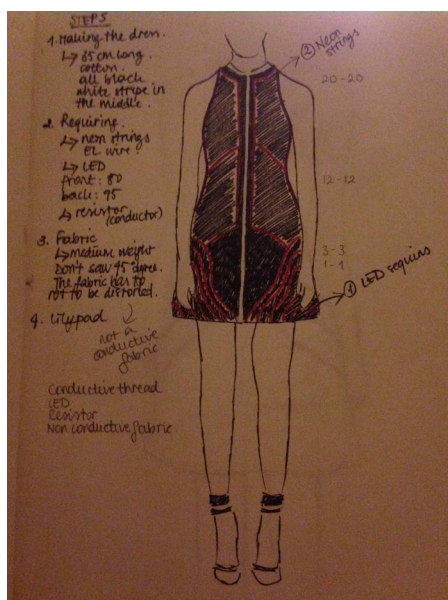 STEPS
1. Making the dress.
↳ 85 cm long
cotton.
all black
white stripe in
the middle.
2. Requiring.
↳ neon strings
EL wire.
↳ LED
front: 80
back: 95
↳ resistor
(conductor)
3. Fabric
↳ medium weight
Don't saw 45 degree.
The fabric has to
not to be distorted.
4. Lilypad
not a
conductive
fabric
Conductive thread
LED
Resistor
Non conductive fabric
② Neon
strings
20-20
12-12
3-3
1-1
① LED sequins